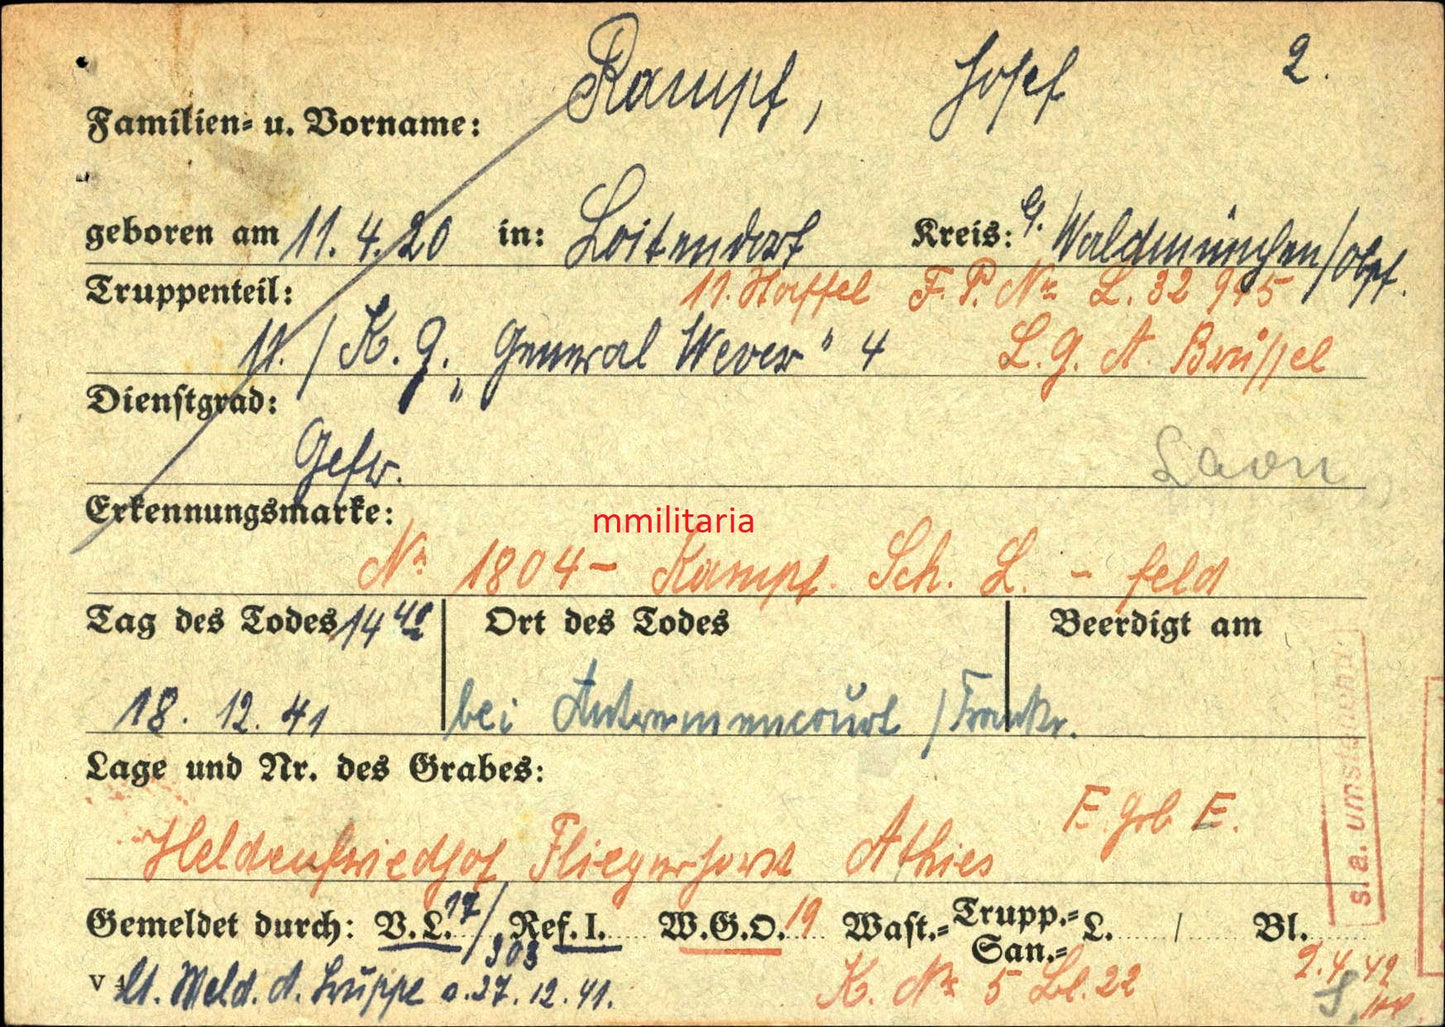 Rampf, Josef 2.
Familien- u. Vorname:
geboren am 11.4.20 in: Loitendorf Kreis: Waldmünchen/Obpf.
Truppenteil: 11. Staffel F.P. Nr L. 32 945
11./K.G. „General Wever" 4 L.G.A. Brüssel
Dienstgrad:
Gefr. Laon
Erkennungsmarke:
mmilitaria
Nr 1804 – Kampf. Sch. L. – feld
Tag des Todes 14 40 Ort des Todes Beerdigt am
18. 12. 41 bei Autremencourt /Frankr.
Lage und Nr. des Grabes:
E. Grb E.
Heldenfriedhof Fliegerhorst Athies
s. a. umstehend
Gemeldet durch: V.L. 17/303 Ref. I. W.G.O. 19 Wast.- Trupp.- San.- L. / Bl.
lt. Meld. d. Truppe v. 27.12.41. K. Nr 5 Bl. 22 2.4.42